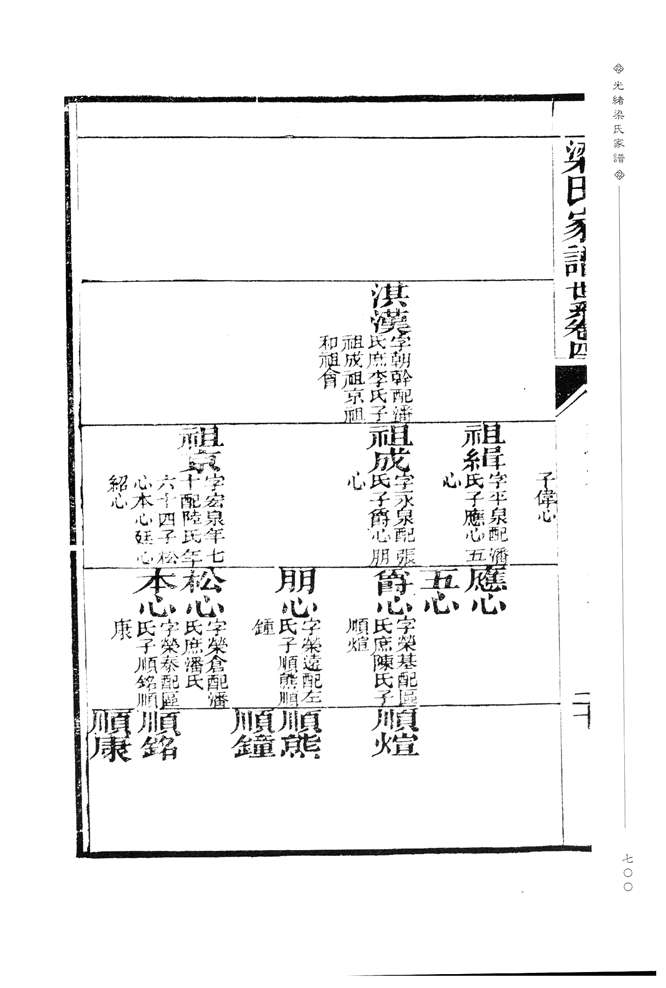 光緒梁氏家譜
梁氏家譜世系卷四
淇漢
字朝幹配潘
氏庶李氏子
祖成祖京祖
和祖會
子偉心
祖緝
字平泉配潘
氏子應心五
心
祖成
字永泉配張
氏子爵心朋
心
祖京
字宏泉年七
十配陸氏年
六十四子松
心本心廷心
紹心
應心
五心
爵心
字榮基配區
氏庶陳氏子
順煊
朋心
字榮遠配左
氏子順熊順
鐘
松心
字榮倉配潘
氏庶潘氏
本心
字榮泰配區
氏子順銘順
康
順煊
順熊
順鐘
順銘
順康
七〇〇